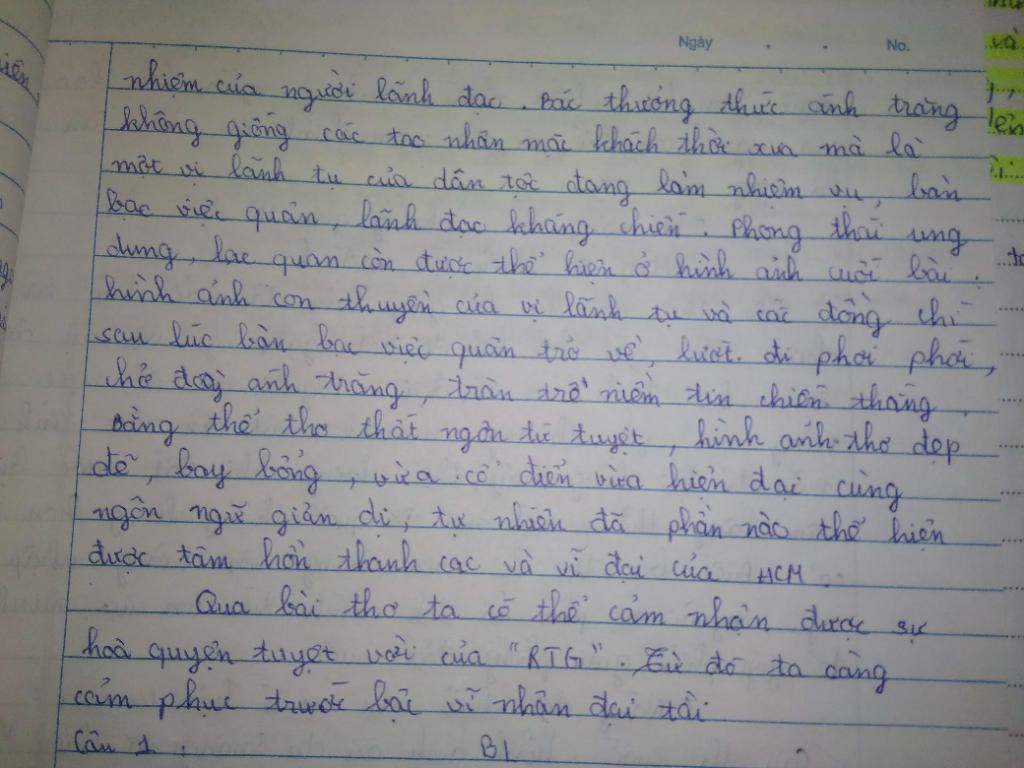 Ngày . . No.
nhiệm của người lãnh đạo. Bác thưởng thức ánh trăng
không giống các tao nhân mặc khách thời xưa mà là
một vị lãnh tụ của dân tộc đang làm nhiệm vụ, bàn
bạc việc quân, lãnh đạo kháng chiến. Phong thái ung
dung, lạc quan còn được thể hiện ở hình ảnh cuối bài.
hình ảnh con thuyền của vị lãnh tụ và các đồng chí
sau lúc bàn bạc việc quân trở về, lướt đi phơi phới,
chở đầy ánh trăng, tràn trề niềm tin chiến thắng.
Bằng thể thơ thất ngôn tứ tuyệt, hình ảnh thơ đẹp
đẽ, bay bổng, vừa cổ điển vừa hiện đại cùng
ngôn ngữ giản dị, tự nhiên đã phần nào thể hiện
được tâm hồn thanh cao và vĩ đại của HCM
Qua bài thơ ta có thể cảm nhận được sự
hoà quyện tuyệt vời của "RTG". Từ đó ta càng
cảm phục trước bậc vĩ nhân đại tài
Câu 1: BL